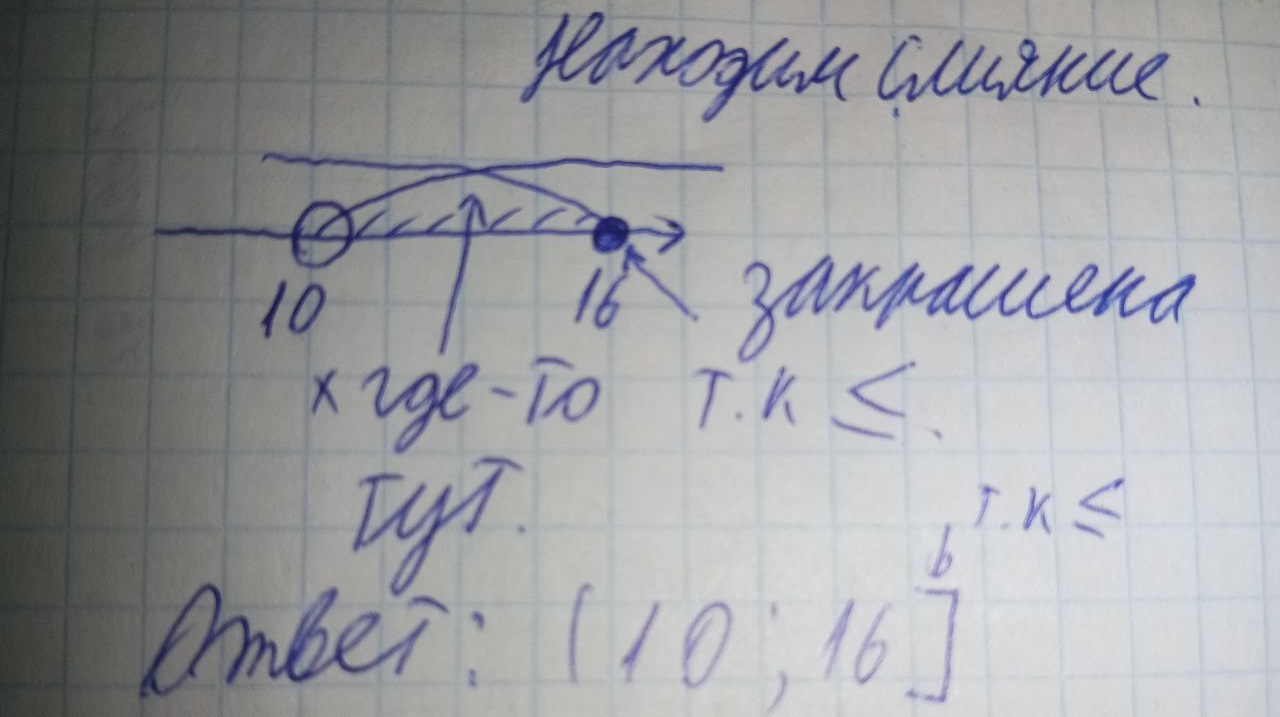 Находим слияние.
10 16 закрашена
х где-то т.к ≤.
тут.
т.к ≤
Ответ: (10; 16]